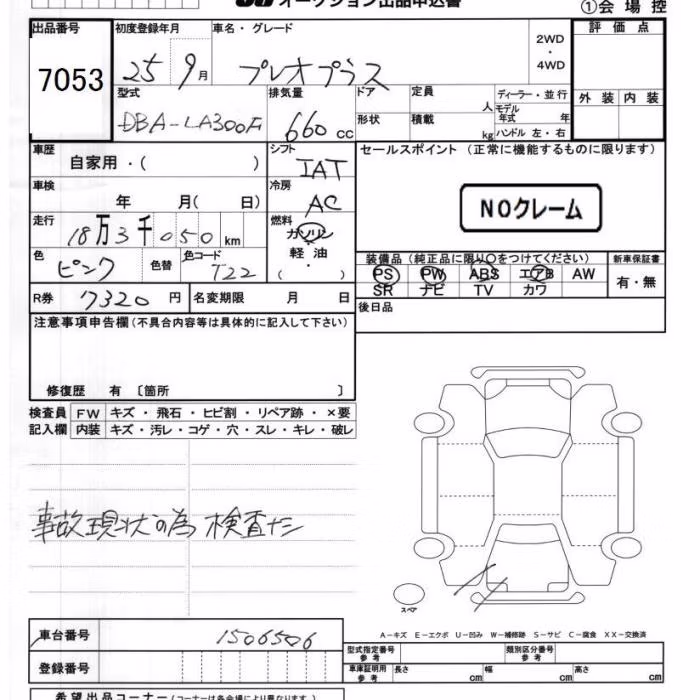 オークション出品申込書
①会場控
出品番号 初度登録年月 車名・グレード 評価点
7053 25 9月 プレオプラス 2WD・4WD
外装 内装
型式 排気量 ドア 定員 人 ディーラー・並行
DBA-LA300F 660cc 形状 積載 kg モデル年式 年 ハンドル 左・右
車歴 自家用・( ) シフト IAT
セールスポイント (正常に機能するものに限ります)
車検 年 月( 日) 冷房 AC
NOクレーム
走行 18万3千050km 燃料 ガソリン 軽油 ( ・ )
色 ピンク 色替 色コード T22
装備品(純正品に限り○をつけてください) 新車保証書
PS PW ABS エアB AW 有・無
SR ナビ TV カワ
R券 7320円 名変期限 月 日
後日品
注意事項申告欄(不具合内容等は具体的に記入して下さい)
修復歴 有 〔箇所 〕
検査員 FW キズ・飛石・ヒビ割・リペア跡・×要
記入欄 内装 キズ・汚レ・コゲ・穴・スレ・キレ・破レ
事故現状の為 検査ナシ
スペア
A-キズ E-エクボ U-凹み W-補修跡 S-サビ C-腐食 XX-交換済
車台番号 1506506
型式指定番号 参考 類別区分番号 参考
登録番号
車庫証明用 参考 長さ cm 幅 cm 高さ cm
希望出品コーナー(コーナーは各会場により異なります)